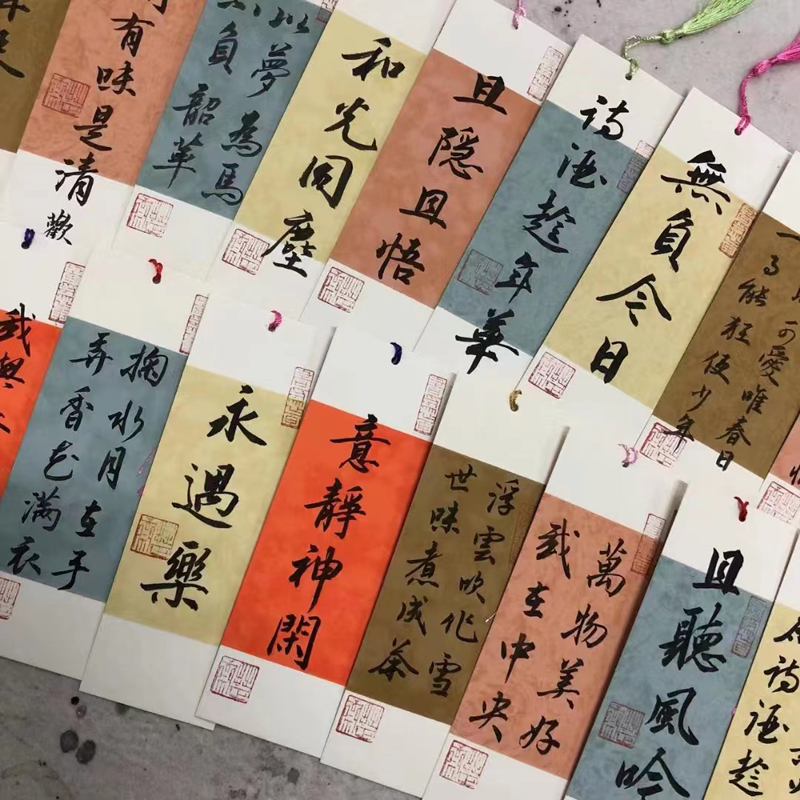 有味是清歡
以夢為馬
負韶華
和光同塵
且隱且悟
詩酒趁年華
無負今日
可愛唯春日
能狂便少年
我與
掬水月在手
弄香花滿衣
永遇樂
意靜神閑
浮雲吹作雪
世味煮成茶
萬物美好
我在中央
且聽風吟
詩酒趁